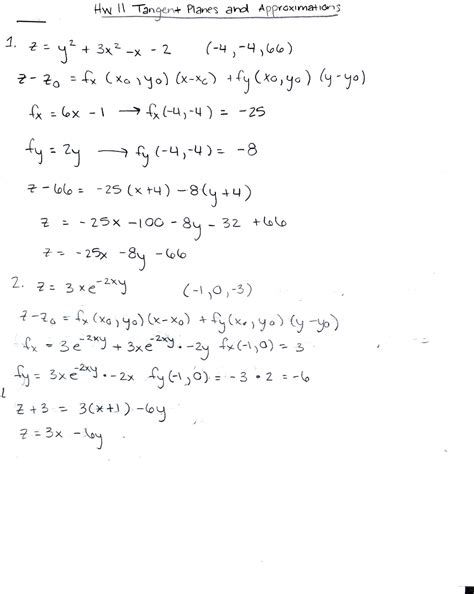 HW 11 Tangent Planes and Approximations
1. z = y² + 3x² - x - 2 (-4, -4, 66)
z - z₀ = fx (x₀, y₀) (x-x₀) + fy (x₀, y₀) (y-y₀)
fx = 6x - 1 → fx(-4,-4) = -25
fy = 2y → fy(-4,-4) = -8
z - 66 = -25(x+4) - 8(y+4)
z = -25x - 100 - 8y - 32 + 66
z = -25x - 8y - 66
2. z = 3xe^-2xy (-1, 0, -3)
z - z₀ = fx (x₀, y₀) (x-x₀) + fy(x₀, y₀) (y-y₀)
fx = 3e^-2xy + 3xe^-2xy · -2y fx(-1,0) = 3
fy = 3xe^-2xy · -2x fy(-1,0) = -3 · 2 = -6
z + 3 = 3(x+1) - 6y
z = 3x - 6y